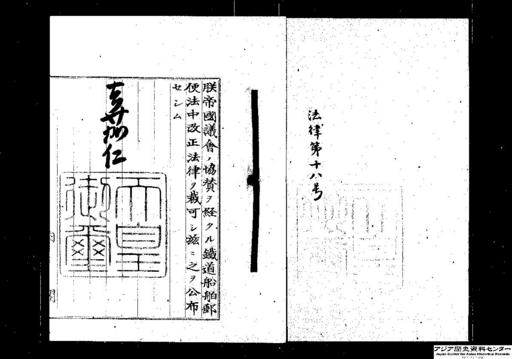 法律第十八号
朕帝國議會ノ協賛ヲ経タル鐵道船舶郵
便法中改正法律ヲ裁可シ茲ニ之ヲ公布
セシム
嘉仁
天皇
御璽
アジア歴史資料センター
Japan Center for Asian Historical Records